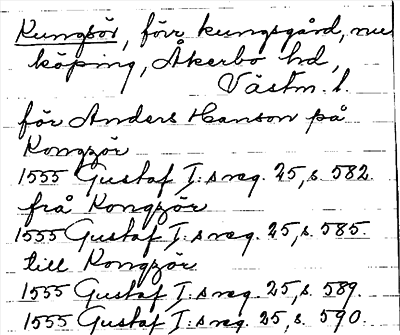 Kungsör, förr kungsgård, nu
köping, Åkerbo hd,
Västm. l.
för Anders Hanson på
Kongzör
1555 Gustaf I:s reg. 25, s. 582.
från Kongzör
1555 Gustaf I:s reg. 25, s. 585.
till Kongzör
1555 Gustaf I:s reg. 25, s. 589.
1555 Gustaf I:s reg. 25, s. 590.